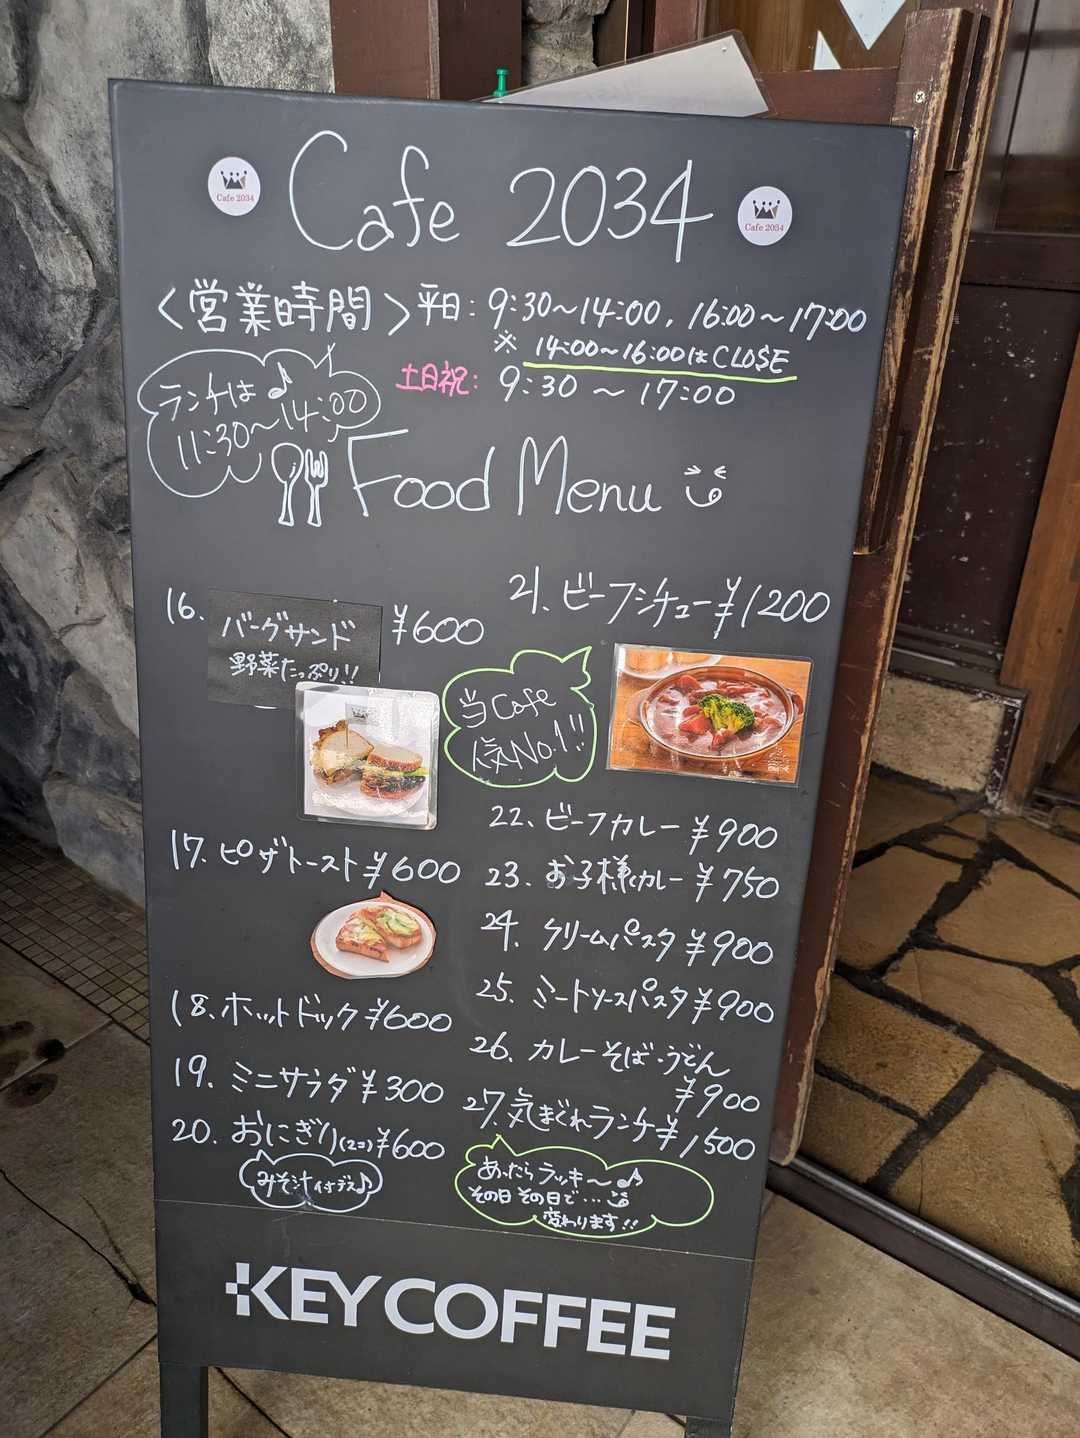 Cafe 2034
Cafe 2034
Cafe 2034
<営業時間> 平日: 9:30〜14:00, 16:00〜17:00
※ 14:00〜16:00はCLOSE
土日祝: 9:30 〜 17:00
ランチは♪
11:30〜14:00
Food Menu
16. バーグサンド ¥600
野菜たっぷり!!
17. ピザトースト ¥600
18. ホットドック ¥600
19. ミニサラダ ¥300
20. おにぎり(2コ) ¥600
みそ汁付デス♪
21. ビーフシチュー ¥1200
当Cafe
人気No.1!!
22. ビーフカレー ¥900
23. お子様カレー ¥750
24. クリームパスタ ¥900
25. ミートソースパスタ ¥900
26. カレーそば・うどん
¥900
27. 気まぐれランチ ¥1500
あったらラッキ〜♪
その日その日で...
変わります!!
KEY COFFEE